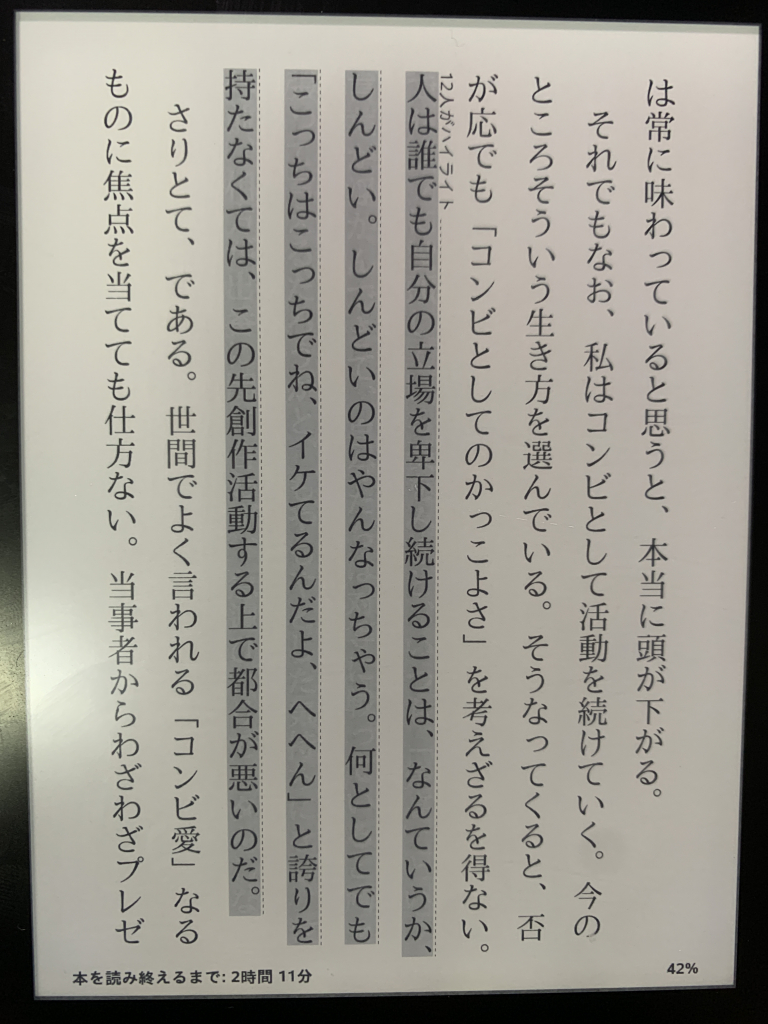 は常に味わっていると思うと、本当に頭が下がる。
それでもなお、私はコンビとして活動を続けていく。今の
ところそういう生き方を選んでいる。そうなってくると、否
が応でも「コンビとしてのかっこよさ」を考えざるを得ない。
12人がハイライト
人は誰でも自分の立場を卑下し続けることは、なんていうか、
しんどい。しんどいのはやんなっちゃう。何としてでも
「こっちはこっちでね、イケてるんだよ、へへん」と誇りを
持たなくては、この先創作活動する上で都合が悪いのだ。
さりとて、である。世間でよく言われる「コンビ愛」なる
ものに焦点を当てても仕方ない。当事者からわざわざプレゼ
本を読み終えるまで: 2時間 11分
42%